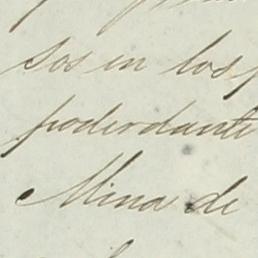 sos en los
poderdante
Mina de